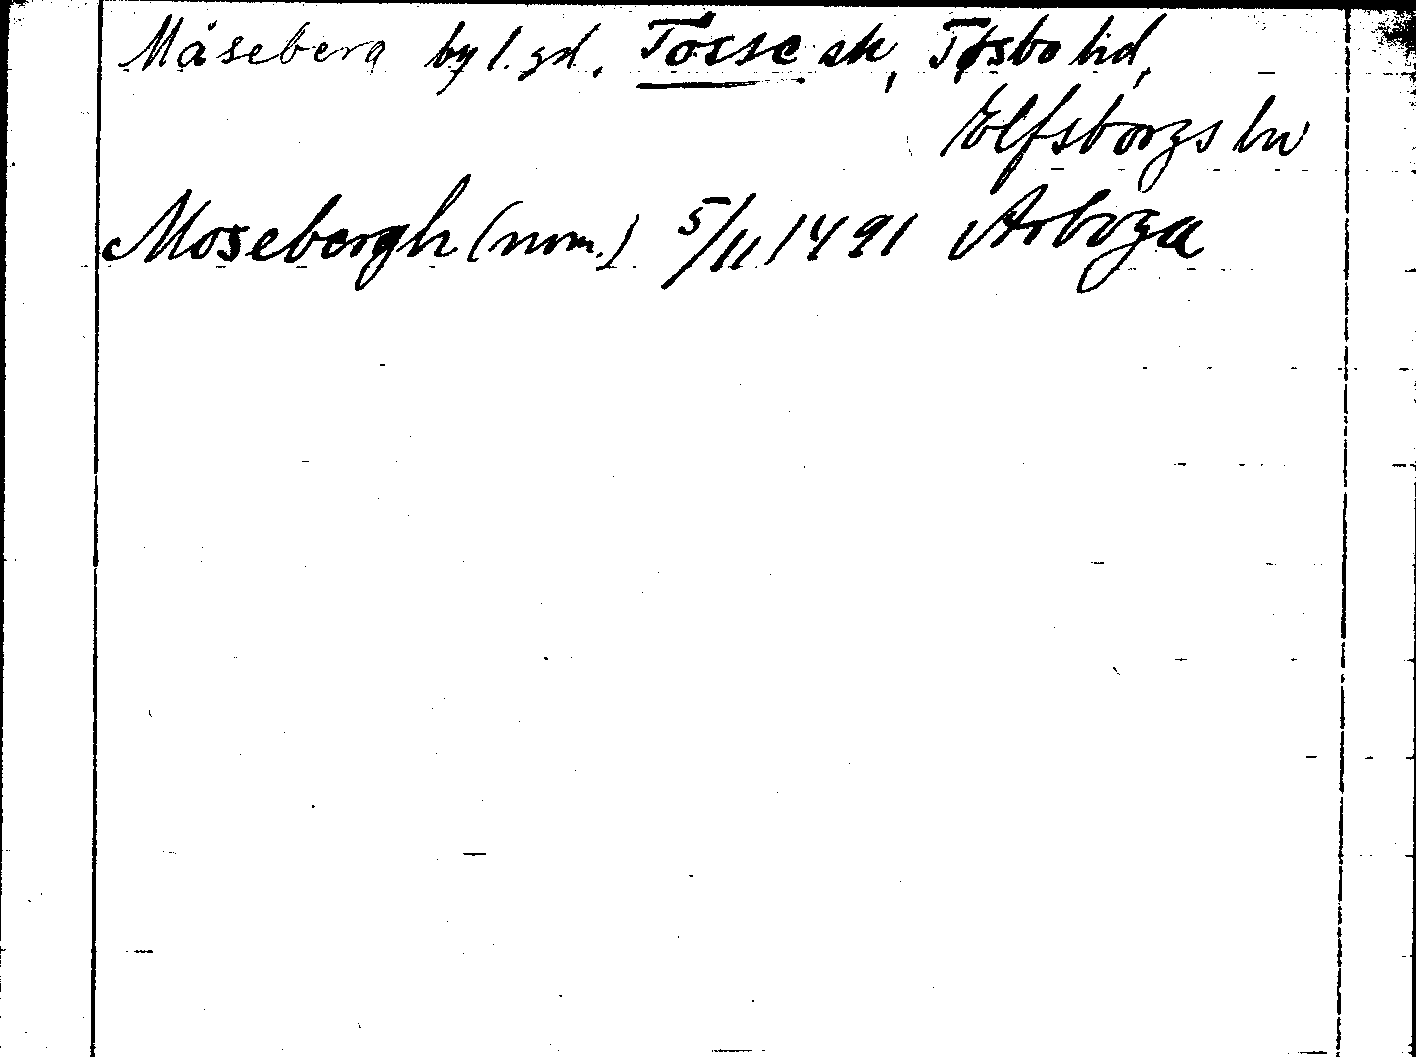 Måseberg by l. gd. Tösse sk, Tössbo hd,
Elfsborgs län
Mosebergh (nom.) 5/11 1491 Arboga